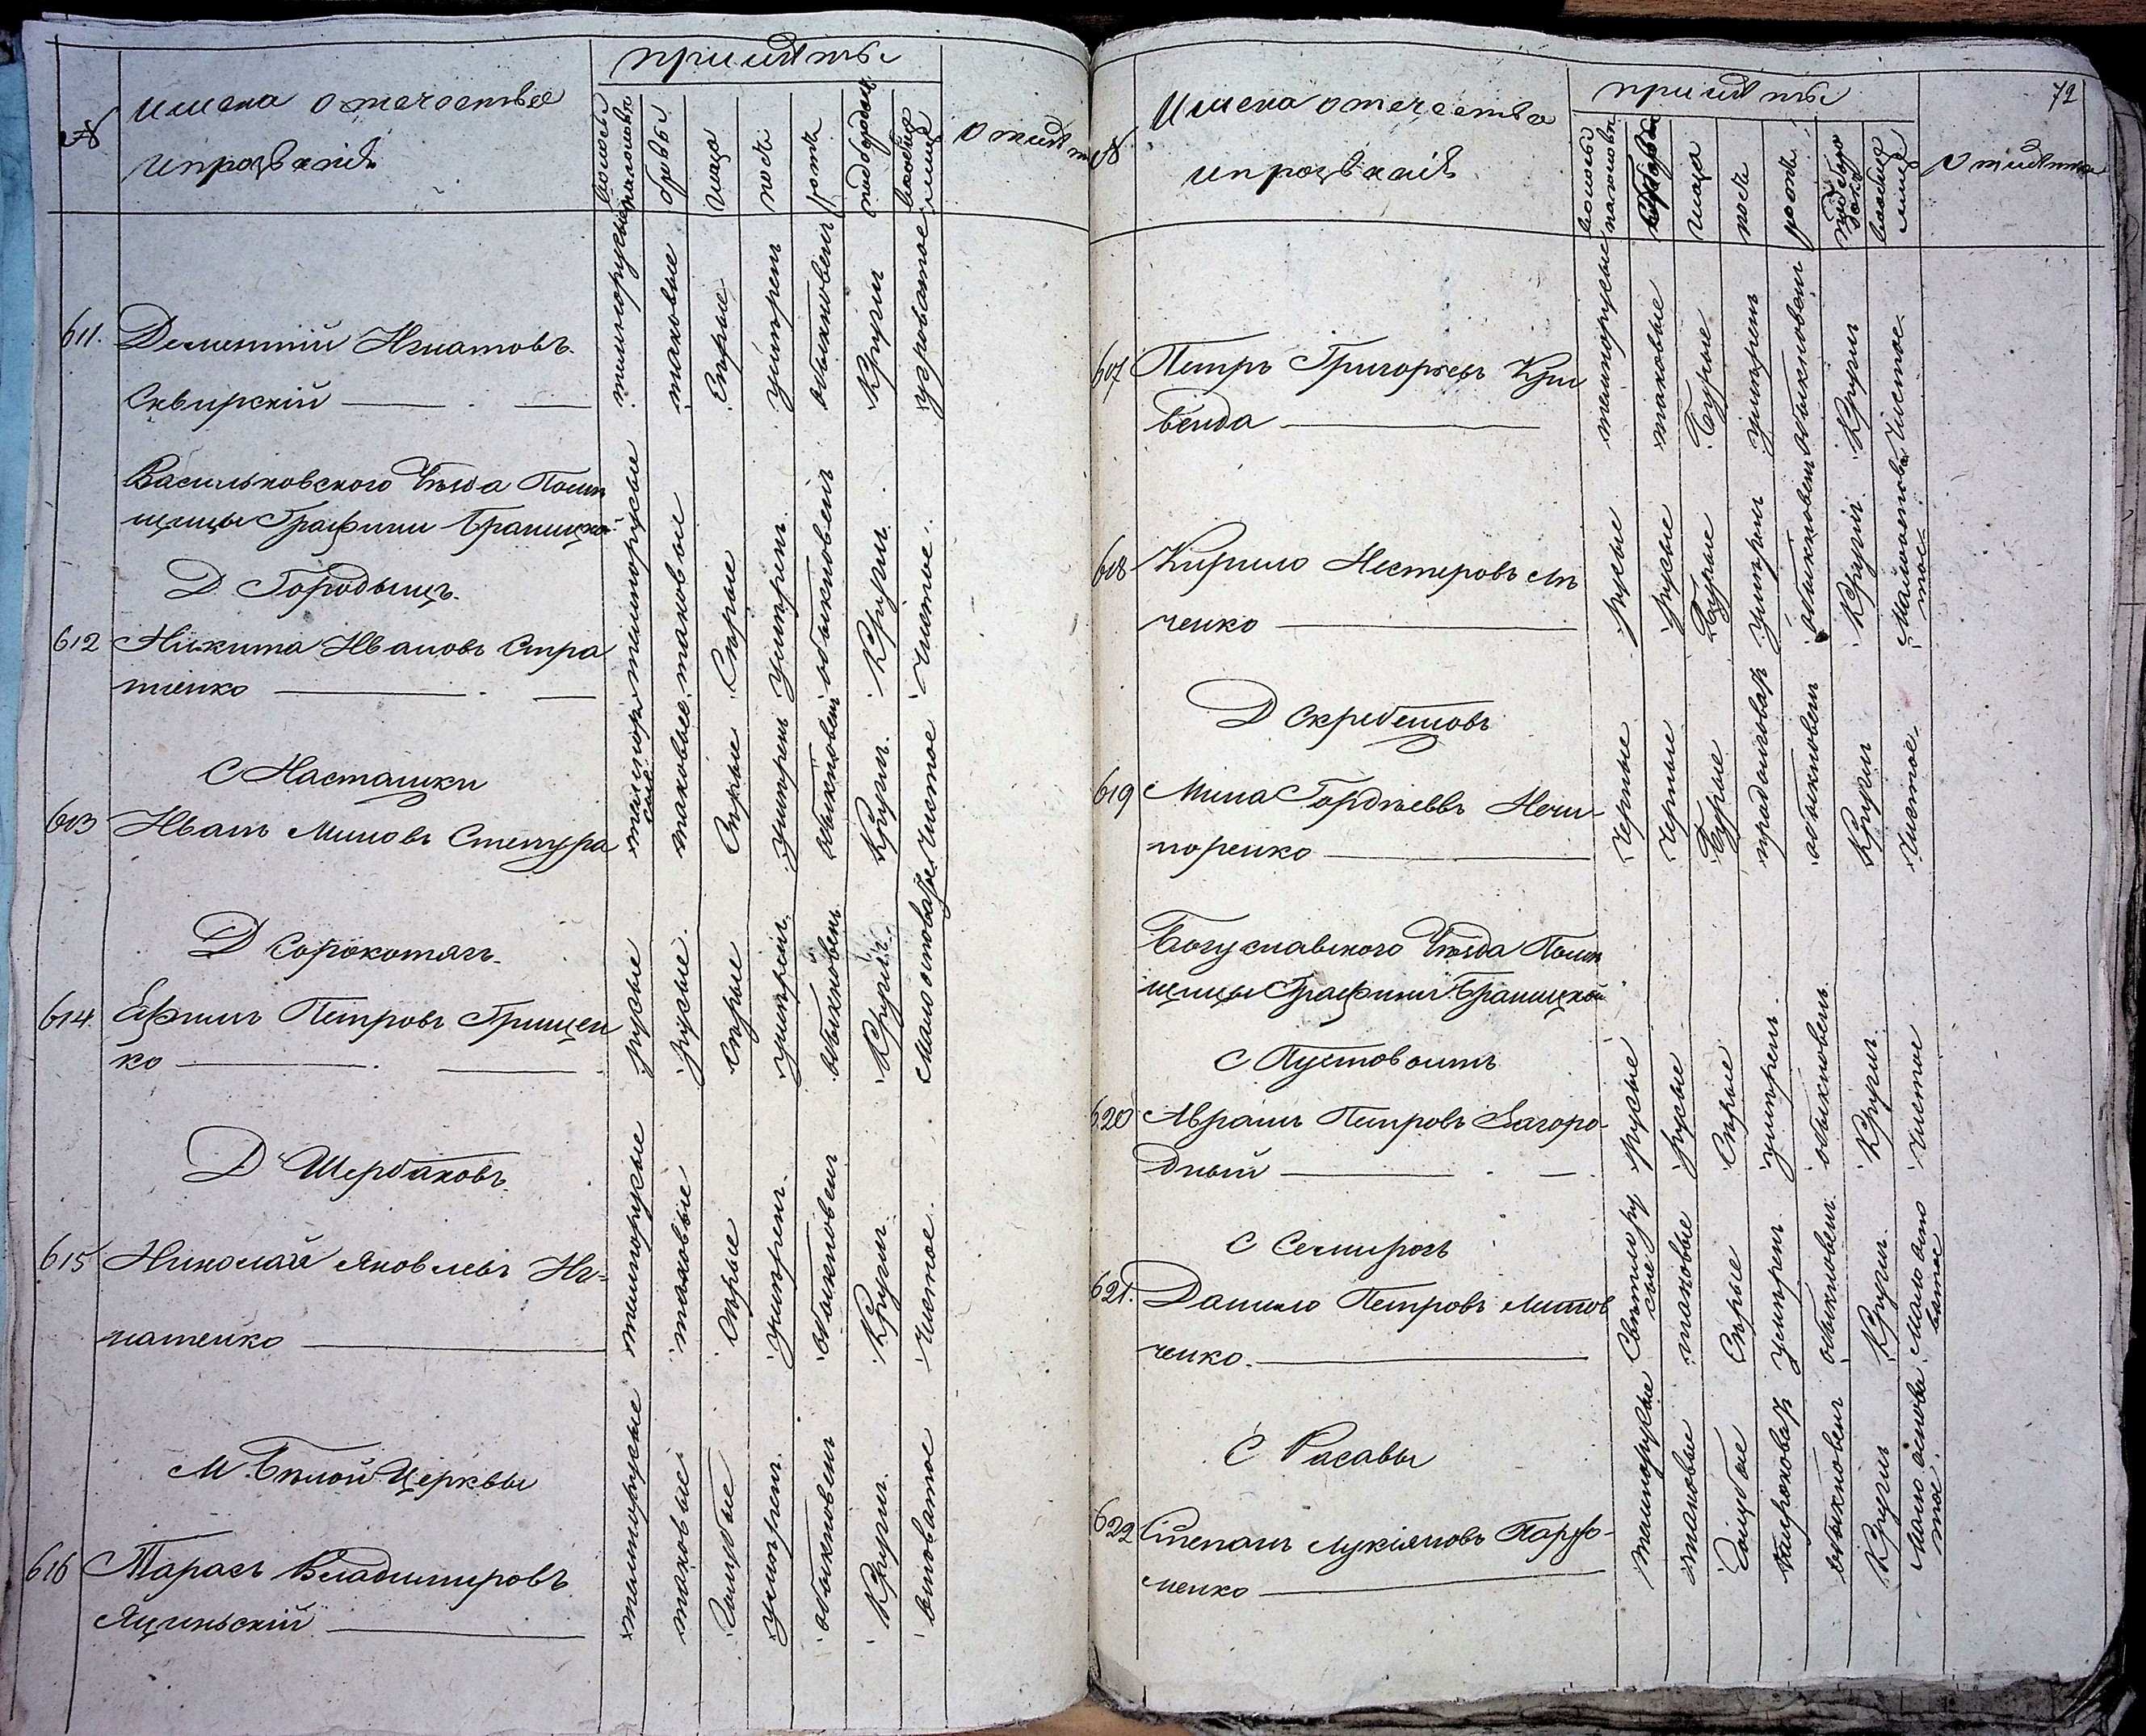 №
имена отечества
и прозваніѣ
примѣты
волосы на головѣ
бровѣ
глаза
носъ
ротъ
подбородокъ
вообще лице
611. Дементій Игнатовъ
Сквирскій
темнорусые
таковые
Сѣрые
умѣрен
обыкновен
Кругл
угроватое
Васильковского Уѣзда Помѣ
щицы Графини Браницкой
Д Городыщъ.
612 Никита Ивановъ Стра
тіенко
темнорусые
таковые
Сѣрые
умѣрен
обыкновен
Кругл
Чистое
С Насташки
613 Иванъ Миновъ Степура
темнору
сые
таковые
Сѣрые
умѣрен
обыкновен
Кругл
Чистое
Д Сорокотягъ
614. Ефимъ Петровъ Грицен
ко
русые
русые
Сѣрые
умѣрен
обыкновен
Кругл
Д Щербаковъ
615 Николай Яковлевъ Иг-
натенко
темнорусые
таковые
Сѣрые
умѣрен
обыкновен
Кругл
Чистое
М. Бѣлой Церквы
616 Тарасъ Владимировъ
темнорусые
таковые
Голубые
умѣрен
обыкновен
Кругл
№
имена отечества
и прозваніѣ
примѣты
72
волосы на головѣ
глаза
носъ
ротъ
подборо
докъ
вообще
лице
отмѣтка
607 Петръ Григорьевъ Кри
венда
темнорусые
таковые
Бурые
умѣрен
обыкновен
Кругл
Чистое
608 Кирило Нестеровъ
ченко
русые
русые
Бурые
умѣрен
обыкновен
Кругл
Д Скребешовъ
619 Мина Гордѣевъ Нечи-
поренко
Черные
Черные
Бурые
продолговат
обыкновен
Кругл
Чистое
Богуславского Уѣзда Помѣ
щицы Графини Браницкой
С Пустовоитъ
620 Аврамъ Петровъ Загоро-
дный
русые
русые
Сѣрые
умѣрен
обыкновен
Кругл
Чистое
С Семирогъ
621. Данило Петровъ Литов
ченко
Свѣтлору
сые
таковые
Сѣрые
умѣрен
обыкновен
Кругл
Мало оспо
ватое
С Расавы
622 Степанъ Лукіяновъ Парфо-
менко
темнорусые
таковые
Голубые
широковат
обыкновен
Кругл
Мало оспова
тое